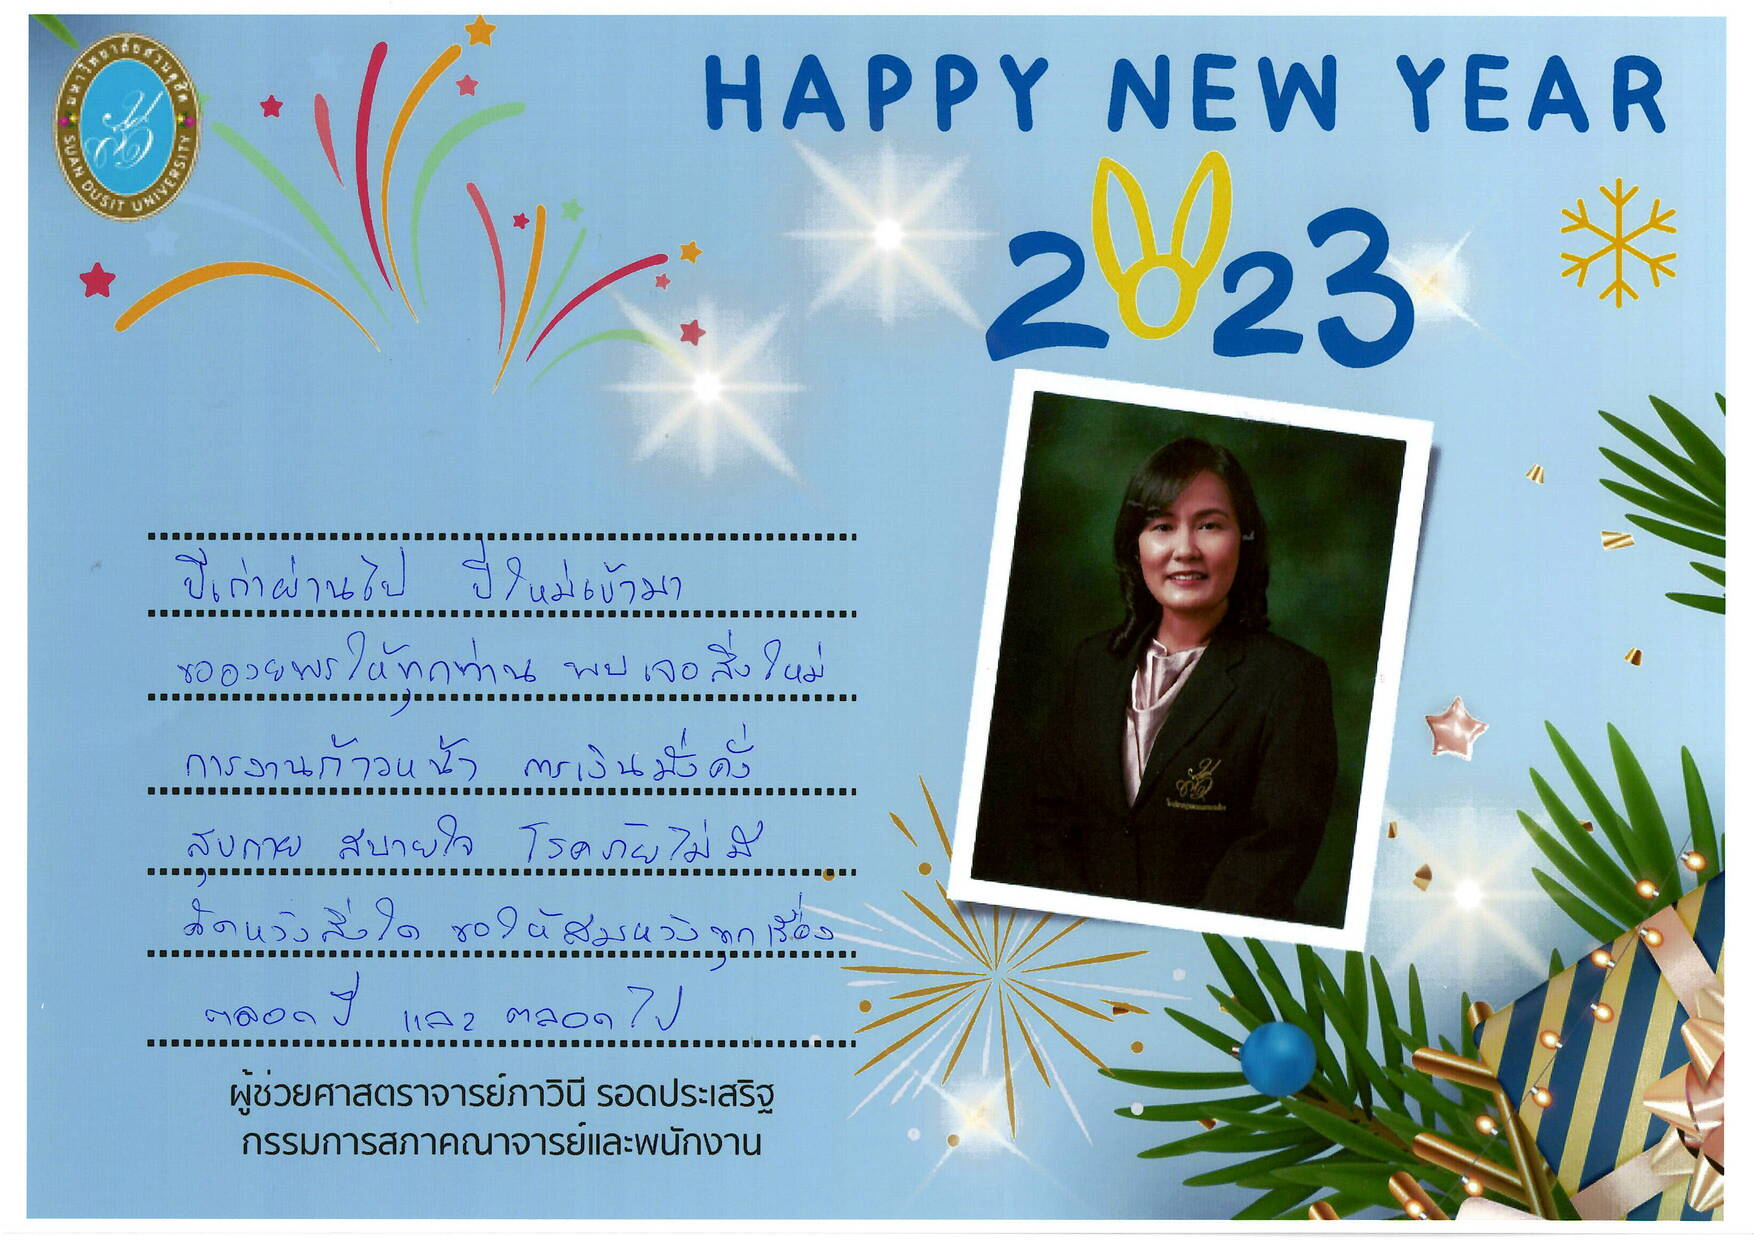 มหาวิทยาลัยสวนดุสิต
SUAN DUSIT UNIVERSITY
HAPPY NEW YEAR
2023
ปีเก่าผ่านไป ปีใหม่เข้ามา
ขออวยพรให้ทุกท่าน พบเจอสิ่งใหม่
การงานก้าวหน้า การเงินมั่งคั่ง
สุขกาย สบายใจ โรคภัยไม่มี
คิดหวังสิ่งใด ขอให้สมหวังทุกเรื่อง
ตลอดปี และ ตลอดไป
ผู้ช่วยศาสตราจารย์ภาวินี รอดประเสริฐ
กรรมการสภาคณาจารย์และพนักงาน